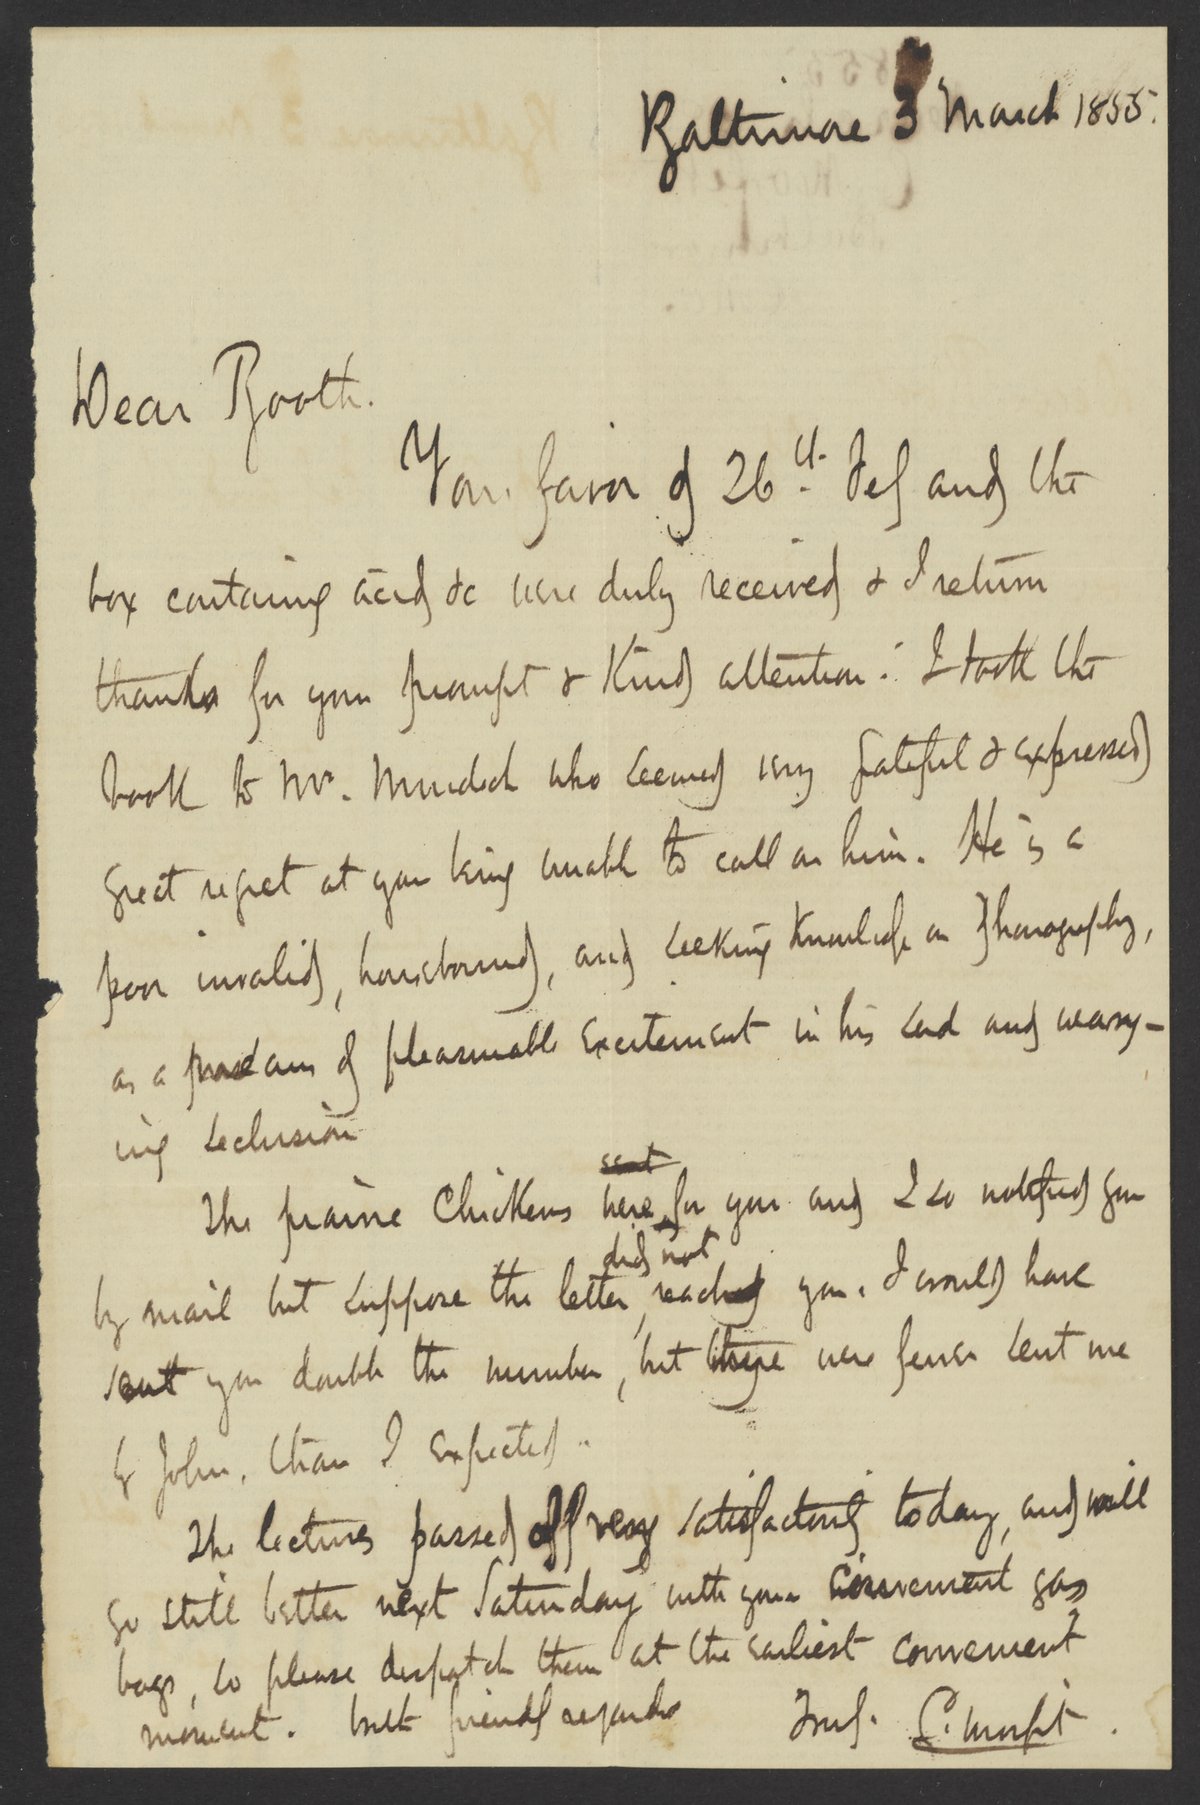 Baltimore 3 March 1855.
Dear Booth.
Your favor of 26th. Feb and the
box containing acid &c were duly received & I return
thanks for your prompt & Kind attention. I took the
book to Mr. Murdoch who seemed very grateful & expressed
great regret at your being unable to call on him. He is a
poor invalid, housebound, and seeking Knowledge on Phonography,
as a means of pleasurable excitement in his sad and weary-
ing seclusion
The prairie Chickens were sent for you and I so notified you
by mail but suppose the letter did not reach you. I would have
sent you double the number, but there were fewer sent me
by John, than I expected.
The lecture passed off very satisfactorily today, and will
go still better next Saturday with your convenient gas
bags, so please despatch them at the earliest convenient
moment. With friendly regards Truly. C. Morfit.